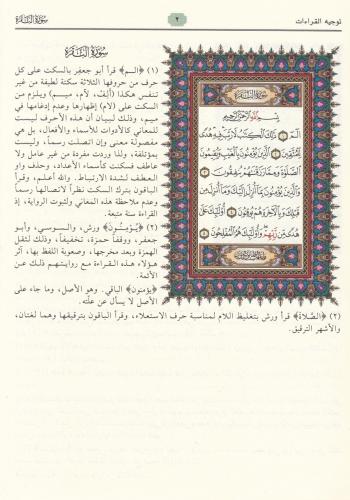 توجيه القراءات
٢
سورة البقرة
سورة البقرة
(١) ﴿الـم﴾ قرأ أبو جعفر بالسكت على كل
حرف من حروفها الثلاثة سكتة لطيفة من غير
تنفس هكذا (ألِفْ، لَامْ، مِيمْ) ويلزم من
السكت على (لام) إظهارها وعدم إدغامها في
ميم، وذلك لبيان أن هذه الأحرف ليست
للمعاني كالأدوات للأسماء والأفعال، بل هي
مفصولة معنى وإن اتصلت رسماً، وليست
بمؤتلفة، وللذا وردت مفردة من غير عامل ولا
عاطف فسكنت كأسماء الأعداد، وحذف واو
العطف لشدة الارتباط. والله أعلم، وقرأ
الباقون بترك السكت نظراً لاتصالها رسماً
وعدم ملاحظة هذه المعاني ولثبوت الرواية، إذ
القراءة سنة متبعة.
(٢) ﴿يُوْمِنُونَ﴾ ورش، والسوسي، وأبو
جعفر، ووقفاً حمزة، تخفيفاً، وذلك لثقل
الهمزة وبعد مخرجها، وصعوبة اللفظ بها، آثر
هؤلاء هذه القراءة مع روايتهم ذلك عن
الأئمة.
﴿يؤمنون﴾ الباقي. وهو الأصل، وما جاء على
الأصل لا يسأل عن علّته.
سورة البقرة
بسم الله الرحمن الرحيم
الٓمٓ ١ ذَٰلِكَ ٱلْكِتَٰبُ لَا رَيْبَ فِيهِ هُدًى
لِّلْمُتَّقِينَ ٢ ٱلَّذِينَ يُؤْمِنُونَ بِٱلْغَيْبِ وَيُقِيمُونَ
ٱلصَّلَوٰةَ وَمِمَّا رَزَقْنَٰهُمْ يُنفِقُونَ ٣
وَٱلَّذِينَ يُؤْمِنُونَ بِمَآ أُنزِلَ إِلَيْكَ وَمَآ أُنزِلَ مِن
قَبْلِكَ وَبِٱلْءَاخِرَةِ هُمْ يُوقِنُونَ ٤ أُو۟لَٰٓئِكَ عَلَىٰ
هُدًى مِّن رَّبِّهِمْ وَأُو۟لَٰٓئِكَ هُمُ ٱلْمُفْلِحُونَ ٥
(٢) ﴿الصّلاة﴾ قرأ ورش بتغليظ اللام لمناسبة حرف الاستعلاء، وقرأ الباقون بترقيقها وهما لغتان،
والأشهر الترقيق.